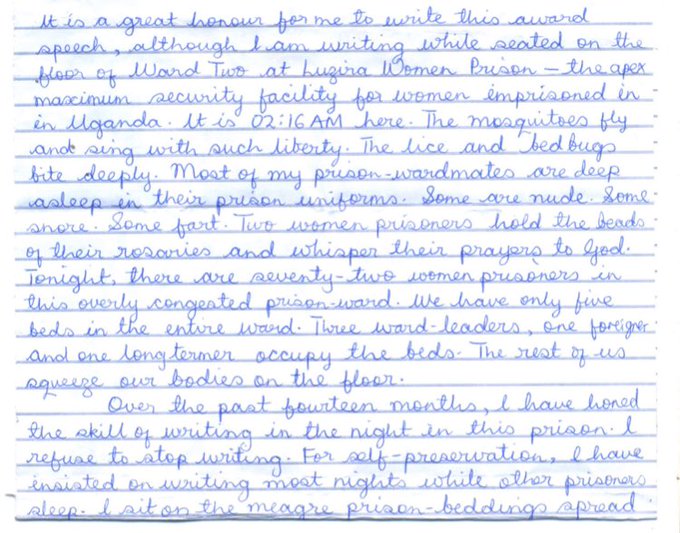 It is a great honour for me to write this award
speech, although I am writing while seated on the
floor of Ward Two at Luzira Women Prison – the apex
maximum security facility for women imprisoned in
in Uganda. It is 02:16AM here. The mosquitoes fly
and sing with such liberty. The lice and bedbugs
bite deeply. Most of my prison-wardmates are deep
asleep in their prison uniforms. Some are nude. Some
snore. Some fart. Two women prisoners hold the beads
of their rosaries and whisper their prayers to God.
Tonight, there are seventy-two women prisoners in
this overly congested prison-ward. We have only five
beds in the entire ward. Three ward-leaders, one foreigner
and one longtermer occupy the beds. The rest of us
squeeze our bodies on the floor.
Over the past fourteen months, I have honed
the skill of writing in the night in this prison. I
refuse to stop writing. For self-preservation, I have
insisted on writing most nights while other prisoners
sleep. I sit on the meagre prison-beddings spread